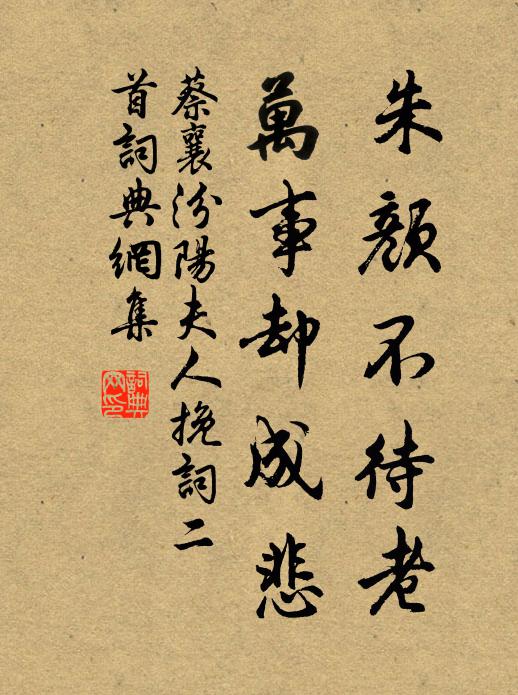 朱顏不待老
萬事却成悲
蔡襄汾陽夫人挽詞二
首詞典網集
詞典
网印